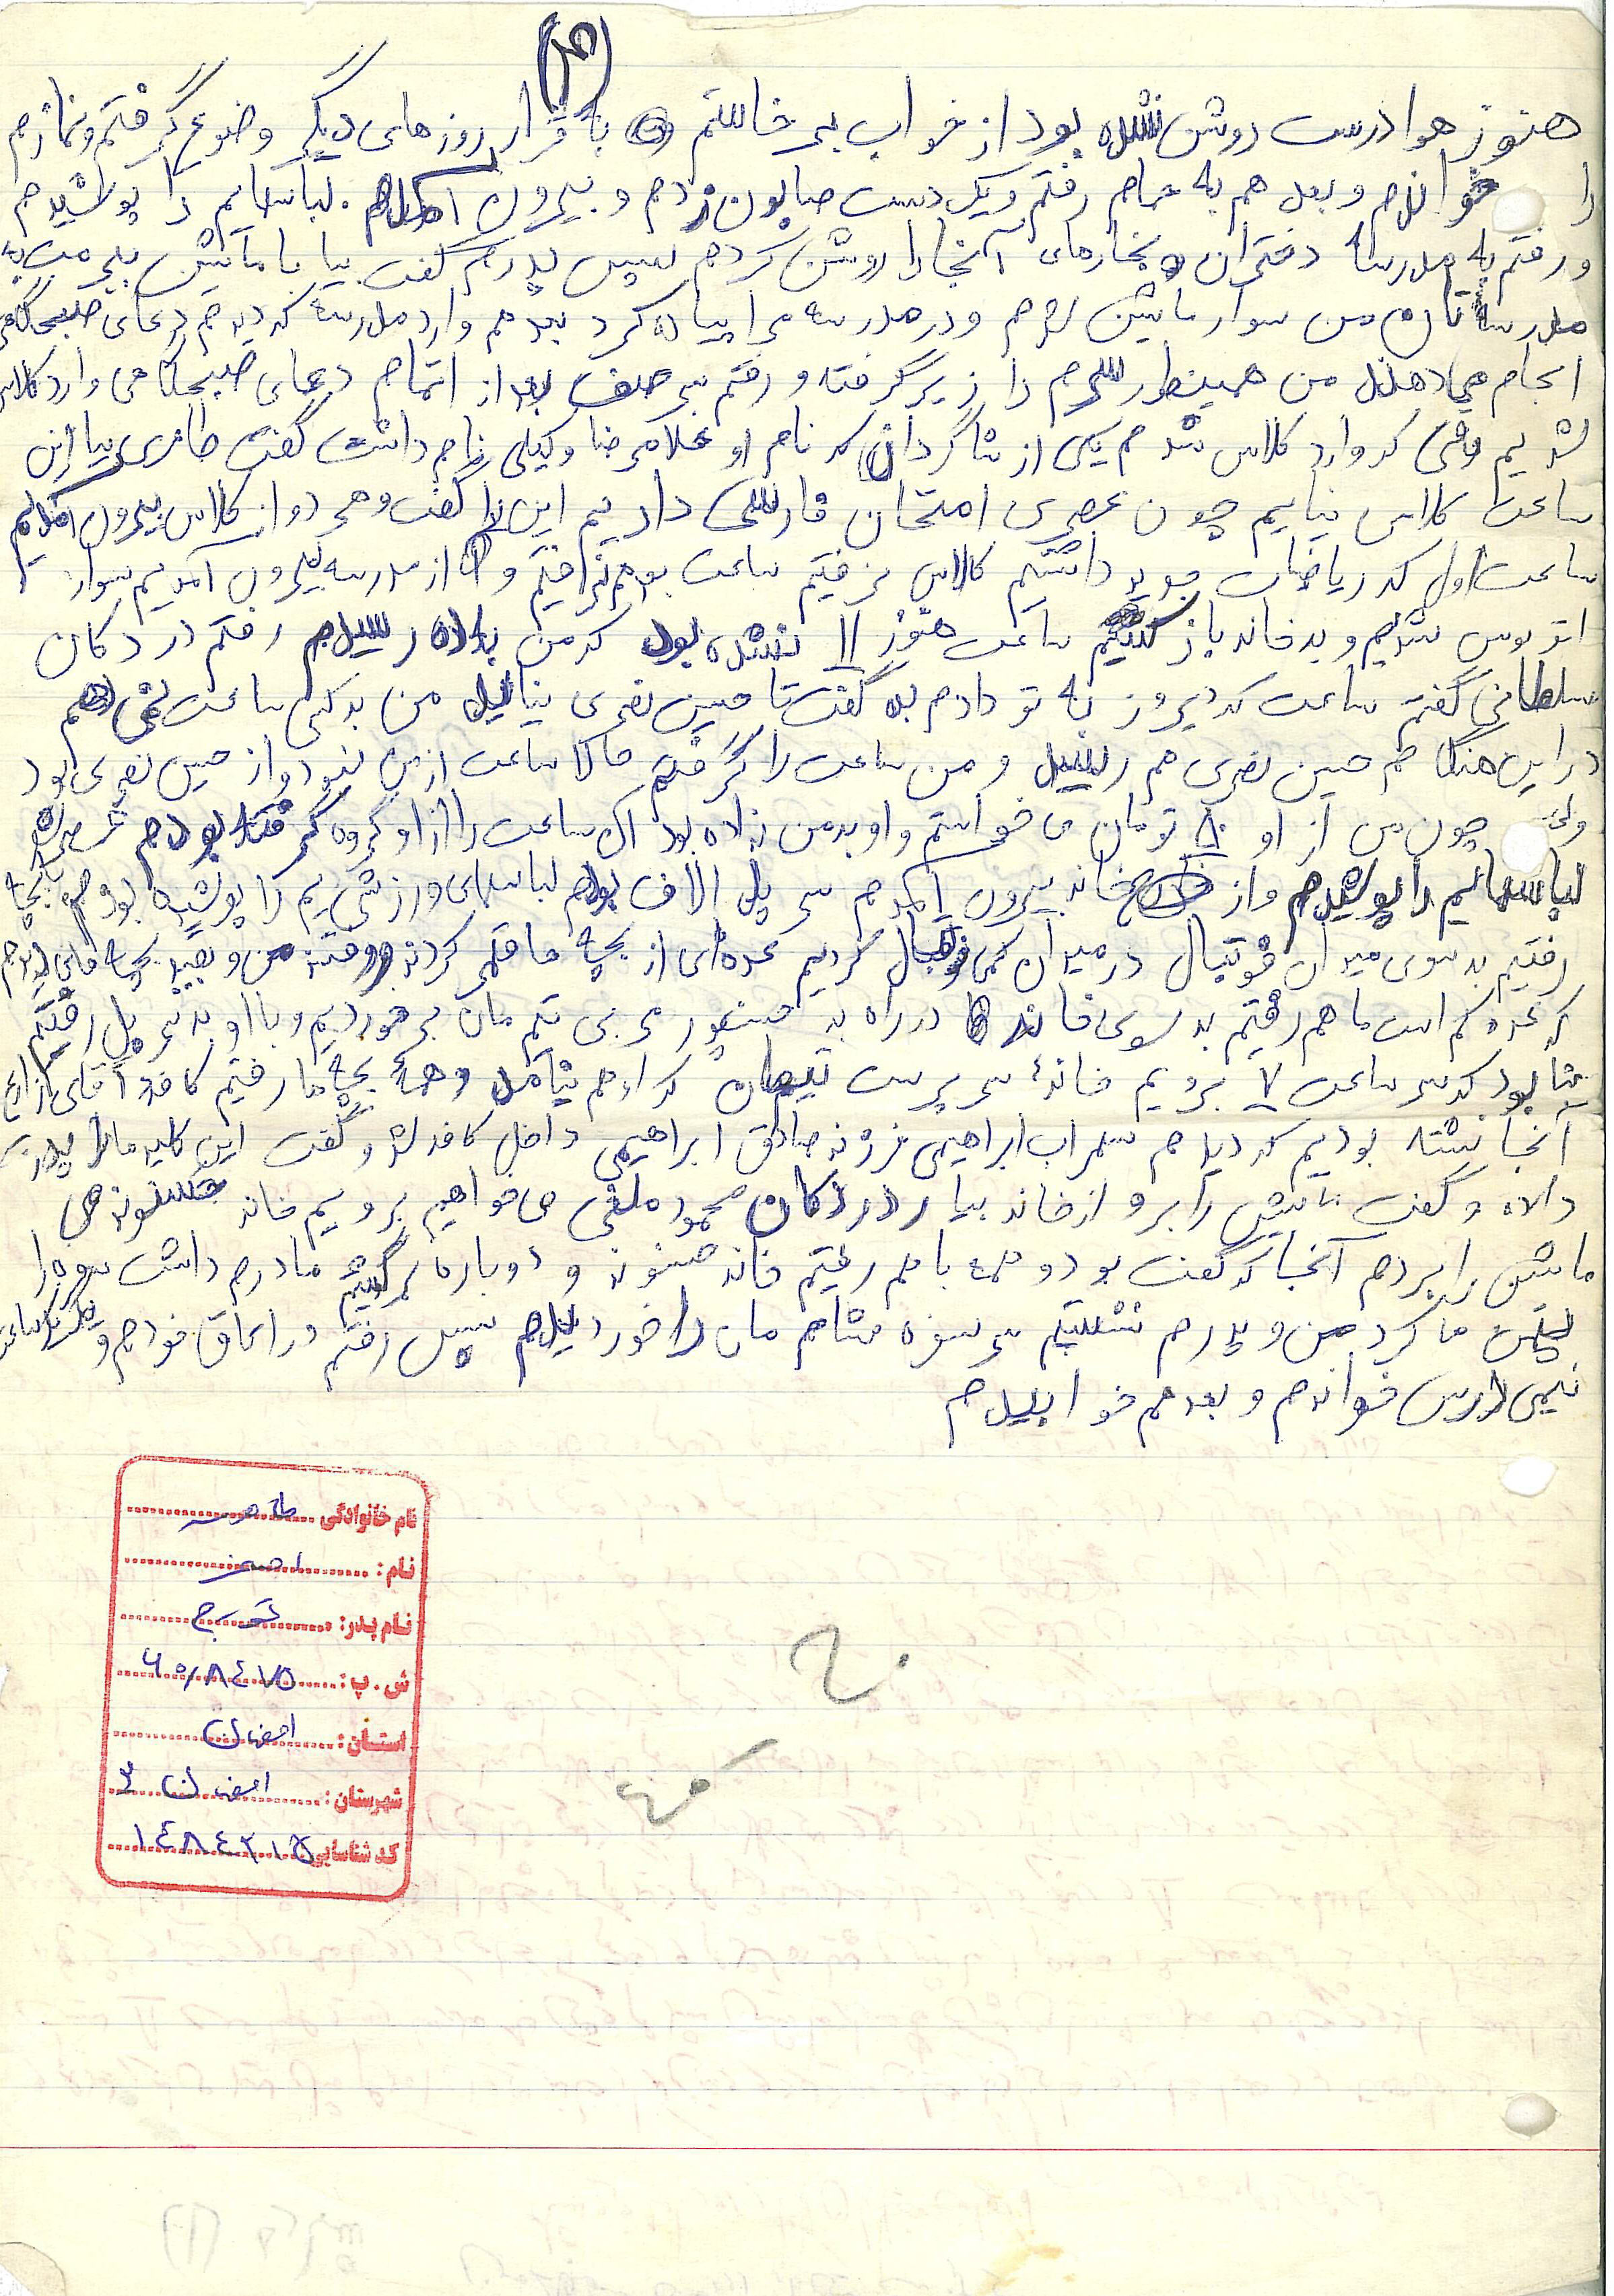 هنوز هوا درست روشن نشده بود از خواب بر خاستم با قرار روزهای دیگر وضوع گرفتم و نمازم
را خواندم و بعد هم به حمام رفتم و یک دست صابون زدم و بیرون آمدم. لباسهایم را پوشیدم
و رفتم به مدرسهٔ دختران و بخارهای آنجا را روشن کردم سپس پدرم گفت بیا با ماشین ببرمت به
مدرسه تان من سوار ماشین شدم و در مدرسه مرا پیاده کرد بعد هم وارد مدرسه که دیدم دعای صبحگاهی
انجام می دهند من همینطور سرم را زیر گرفته و رفتم سر صف بعد از اتمام دعای صبحگاهی وارد کلاس
شدیم وقتی که وارد کلاس شدم یکی از شاگردان که نام او غلامرضا وکیلی نام داشت گفت طاهری بیا این
ساعت کلاس نیاییم چون عصری امتحان فارسی داریم این را گفت و هر دو از کلاس بیرون آمدیم
ساعت اول که ریاضیات جدید داشتیم کلاس نرفتیم ساعت بعد هم نرفتیم و از مدرسه بیرون آمدیم سوار
اتوبوس شدیم و به خانه باز گشتیم ساعت هنوز ۱۱ نشده بود که من به ده رسیدم رفتم در دکان
سلطانی گفتم ساعت که دیروز به تو دادم بده گفت تا حسین نصری نیاید من به کسی ساعت نمی دهم
در این هنگام حسین نصری هم رسید و من ساعت را گرفتم حالا ساعت از من نبود و از حسین نصری بود
ولی چون من از او ۵۰ تومان می خواستم و او به من نداده بود آن ساعت را از او گروه گرفته بودم
لباسهایم را پوشیدم و از خانه بیرون آمدم سر پل الاف بودم لباسهای ورزشی یم را پوشیده بودم
رفتیم به سوی میدان فوتبال در میدان کمی فوتبال کردیم عده ای از بچه ها قهر کردند و رفتند من و بقیه بچه ها دیدیم
که عده کم است ما هم رفتیم به سوی خانه در راه به منصور مربی تیم مان بر خوردیم و با او به سر پل رفتیم
بنا بود که سر ساعت ۷ برویم خانهٔ سرپرست تیممان که او هم نیامد و همهٔ بچه ها رفتیم کافه آقای
آنجا نشسته بودیم که دیدم سهراب ابراهیمی فرزند صادق ابراهیمی داخل کافه شد و گفت این کلید ماشین پدرت
داده و گفت ماشین را برو از خانه بیار در دکان محمود ملقی می خواهیم برویم خانه
ماشین را بردم آنجا که گفت بود و همه با هم رفتیم خانه و دوباره برگشتیم مادرم داشت سفره را
پهن ما کرد من و پدرم نشستیم سر سفره شام مان را خوردیم سپس رفتم در اطاق خودم و یک ساعت
نیمی درس خواندم و بعد هم خوابیدم
نام خانوادگی طاهری
نام:
نام پدر: تورج
ش.پ: ۶۰۸۴۷۵
استان: اصفهان
شهرستان: اصفهان ۲
کد شناسایی ۱۴۸۴۲۱۵